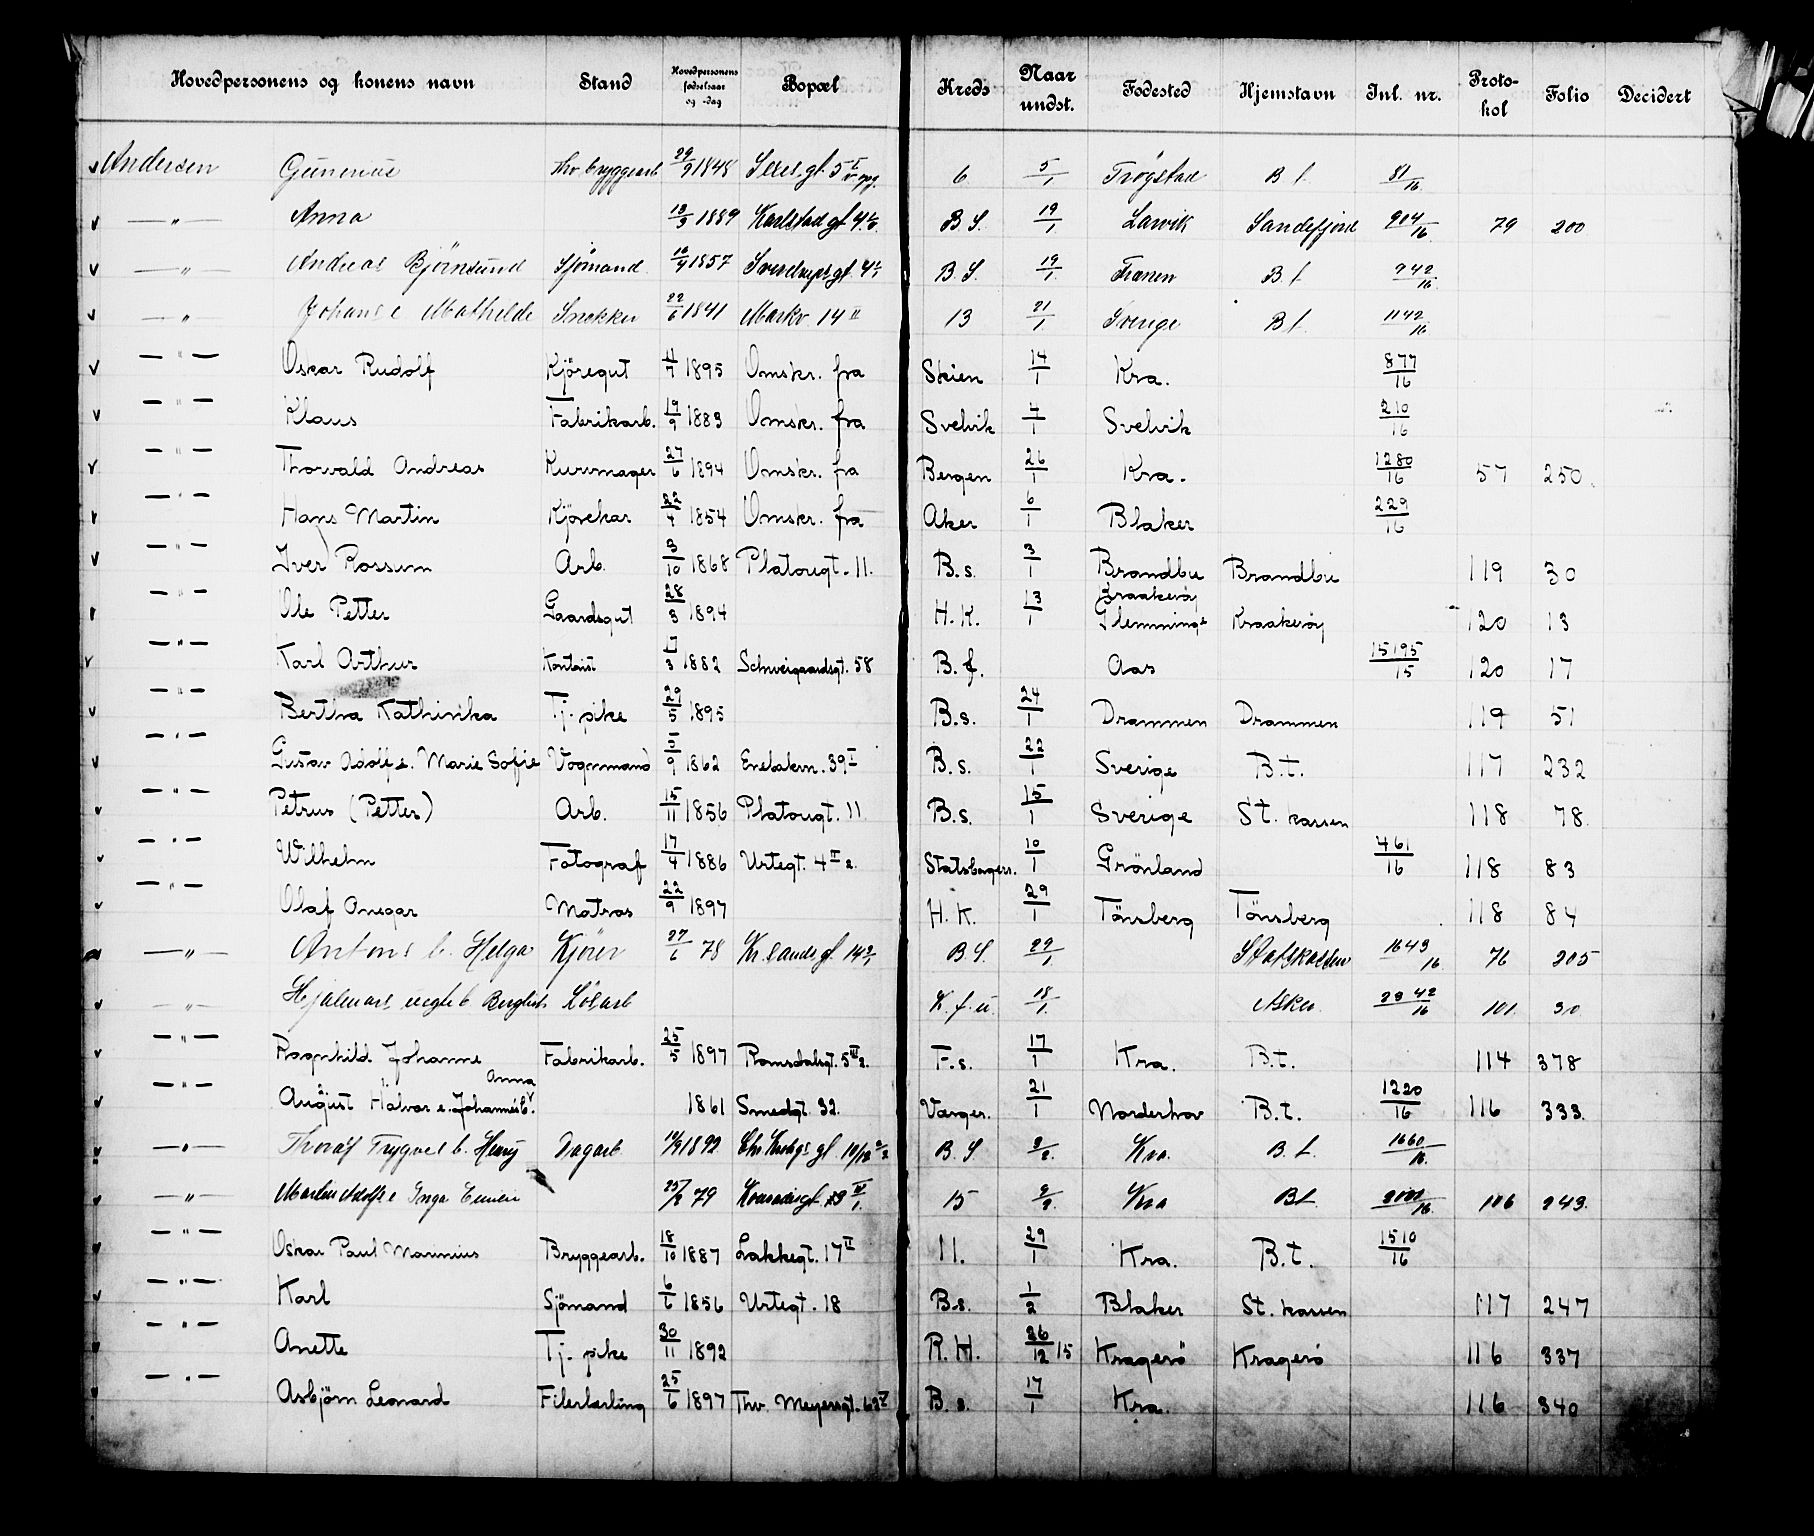 Hovedpersonens og konens navn Stand Hovedpersonens fødselsaar og -dag Bopæl Kreds Naar undst. Fødested Hjemstavn Inl. nr. Proto-kol Folio Decidert
Andersen Gunerius bryggearb 29/9 1848 gt. 5 6 5/1 Trøgstad B t. 81/16
—„— Anna 13/3 1889 Karlstad gt B S. 19/1 Larvik Sandefjord 904/16 79 200
—„— Andreas Bjørnsund Sjømand 1857 Sverdrups gt. B. S. 19/1 Tranen B t. 942/16
—„— Johan e Mathilde Snekker 22/6 1841 Markv 14 II 13 21/1 Sverige B t. 1142/16
—„— Oskar Rudolf Kjöregut 4/7 1895 Omskr. fra Skien 14/1 Kra. 877/16
—„— Klaus Fabrikarb. 19/9 1883 Omskr. fra Svelvik 4/1 Svelvik 210/16
—„— Thorvald Andreas Kurvmager 27/6 1894 Omskr. fra Bergen 26/1 Kra. 1280/16 57 250
—„— Hans Martin Kjörekar 22/4 1854 Omskr. fra Aker 6/1 Blaker 229/16
—„— Iver Rossum Arb. 3/10 1868 Platougt. 11. B. s. 3/1 Brandbu Brandbu 119 30
—„— Ole Petter Gaardsgut 28/3 1894 H. K. 13/1 Kraakeröy Glemminge Kraakeröy 120 13
—„— Karl Arthur Kontorist 3 1882 Schweigaardsgt. 58 B. f. Aas 15195/15 120 17
—„— Bertha Kathinka Tj. pike 29/5 1895 B. s. 24/1 Drammen Drammen 119 51
—„— Gustav Adolf e. Marie Sofie Vognmand 5/9 1862 Enebakvn. 39 I B. s. 22/1 Sverige B. t. 117 232
—„— Petrus (Petter) Arb. 15/11 1856 Platougt. 11 B. s. 15/1 Sverige St. kassen 118 78
—„— Wilhelm Fotograf 17/4 1886 Urtegt. 4 II 2. Statsborgers. 10/1 Grönland 461/16 118 83
—„— Olaf Ansgar Matros 22/9 1897 H. K. 29/1 Tönsberg Tönsberg 118 84
—„— Anton b. Helga Kjører 27/6 78 gt. B S. 29/1 Statskassen 1643/16 76 205
—„— Hjalmar Løsarb K. f. u. 18/1 Asker 2942/16 101 30
—„— Ragnhild Johanne Fabrikarb. 25/5 1897 Romsdalsgt. 5 III 2. F. s. 17/1 Kra. B. t. 114 378
—„— August Halvor e. Johanne Anna 1861 Smedgt. 32. Værger. 21/1 Norderhov B. t. 1220/16 116 333
—„— Thoralf Trygve b. Henry Dagarb 1892 gt 10/12 B. S 3/2 Kra. B. t. 1660/16
—„— Martin Adolf e Inga 25/2 79 15 2/2 Kra B t. 2001/16 106 243
—„— Oskar Paul Marinius Bryggearb. 18/10 1887 Lakkegt. 17 II 11. 29/1 Kra. B. t. 1510/16
—„— Karl Sjömand 6/6 1856 Urtegt. 18 B. s. 1/2 Blaker St. kassen 117 247
—„— Anette Tj. pike 30/11 1892 R. H. 26/12 15 Kragerö Kragerö 116 337
—„— Asbjörn Leonard Filerlærling 25/6 1897 Thv. Meyersgt. B. s. 17/1 Kra. 116 340